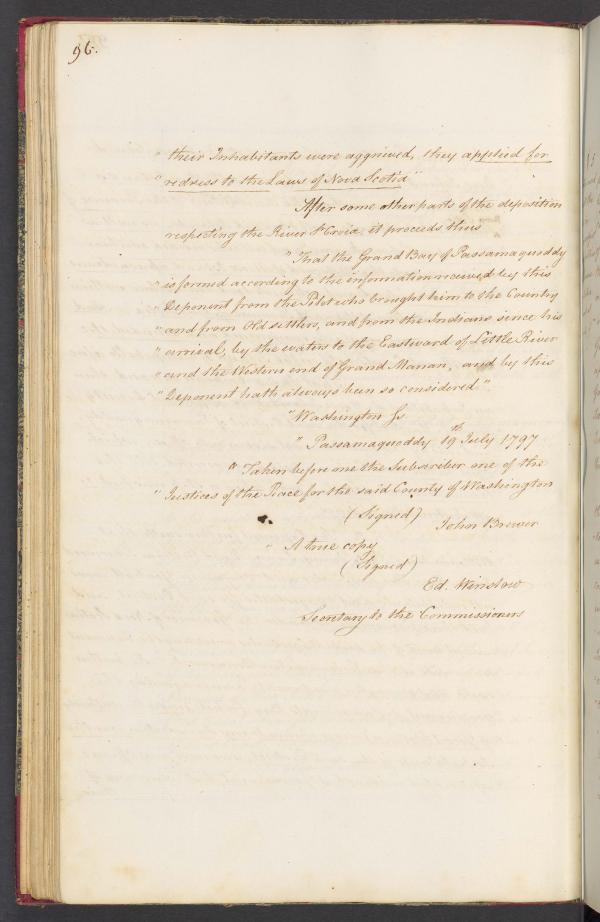 96.
" their Inhabitants were aggrieved, they applied for
" redress to the Laws of Nova Scotia"
After some other parts of the deposition
respecting the River St Croix it proceeds thus
" That the Grand Bay of Passamaquoddy
" is formed according to the information received by this
" Deponent from the Pilot who brought him to the Country
" and from Old settlers, and from the Indians since his
" arrival, by the waters to the Eastward of Little River
" and the Western end of Grand Manan, and by this
" Deponent hath always been so considered".
" Washington Ss
" Passamaquoddy 19th July 1797
" Taken before me the Subscriber one of the
" Justices of the Peace for the said County of Washington
(Signed)
John Brewer
" A true copy
(Signed)
Ed. Winslow
Secretary to the Commissioners